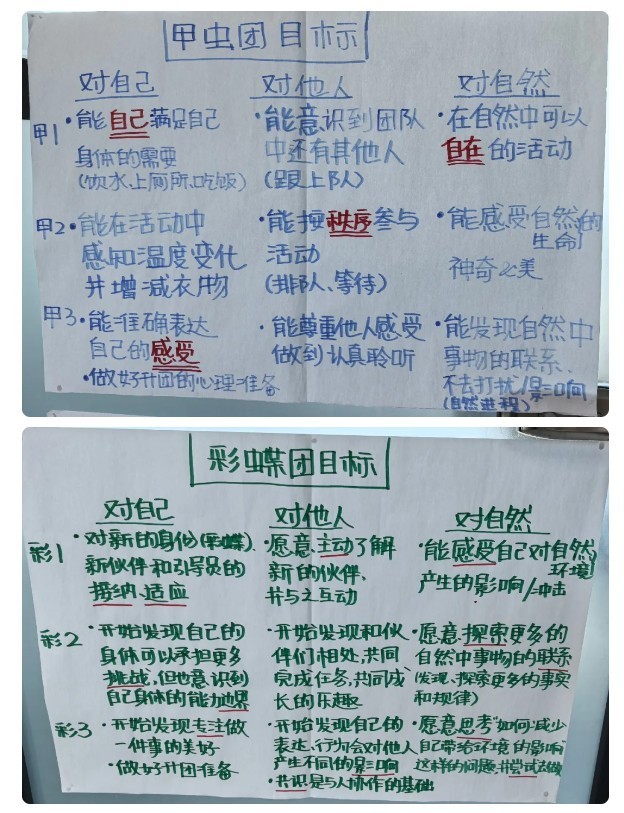 甲虫团目标
对自己
对他人
对自然
甲1
·能自己满足自己
身体的需要
(饮水、上厕所、吃饭)
·能意识到团队
中还有其他人
(跟上队)
·在自然中可以
自在的活动
甲2
·能在活动中
感知温度变化
并增减衣物
·能按秩序参与
活动
(排队、等待)
·能感受自然的
生命
神奇之美
甲3
·能准确表达
自己的感受
·做好升团的心理准备
·能尊重他人感受
做到认真聆听
·能发现自然中
事物的联系、
不去打扰/影响
(自然进程)
彩蝶团目标
对自己
对他人
对自然
彩1
·对新的身份(彩蝶)、
新伙伴和引导员的
接纳、适应
·愿意主动了解
新的伙伴、
并与之互动
·能感受自己对自然
环境
产生的影响/冲击
彩2
·开始发现自己的
身体可以承担更多
挑战,但也意识到
自己身体的能力边界
·开始发现和伙
伴们相处,共同
完成任务,共同成
长的乐趣
·愿意探索更多的
自然中事物的联系
(发现、探索更多的事实
和规律)
彩3
·开始发现专注做
一件事的美好
·做好升团准备
·开始发现自己的
表达、行为会对他人
产生不同的影响
·共识是与人协作的基础
·愿意思考"如何减少
自己带给环境的影响"
这样的问题,并尝试去做